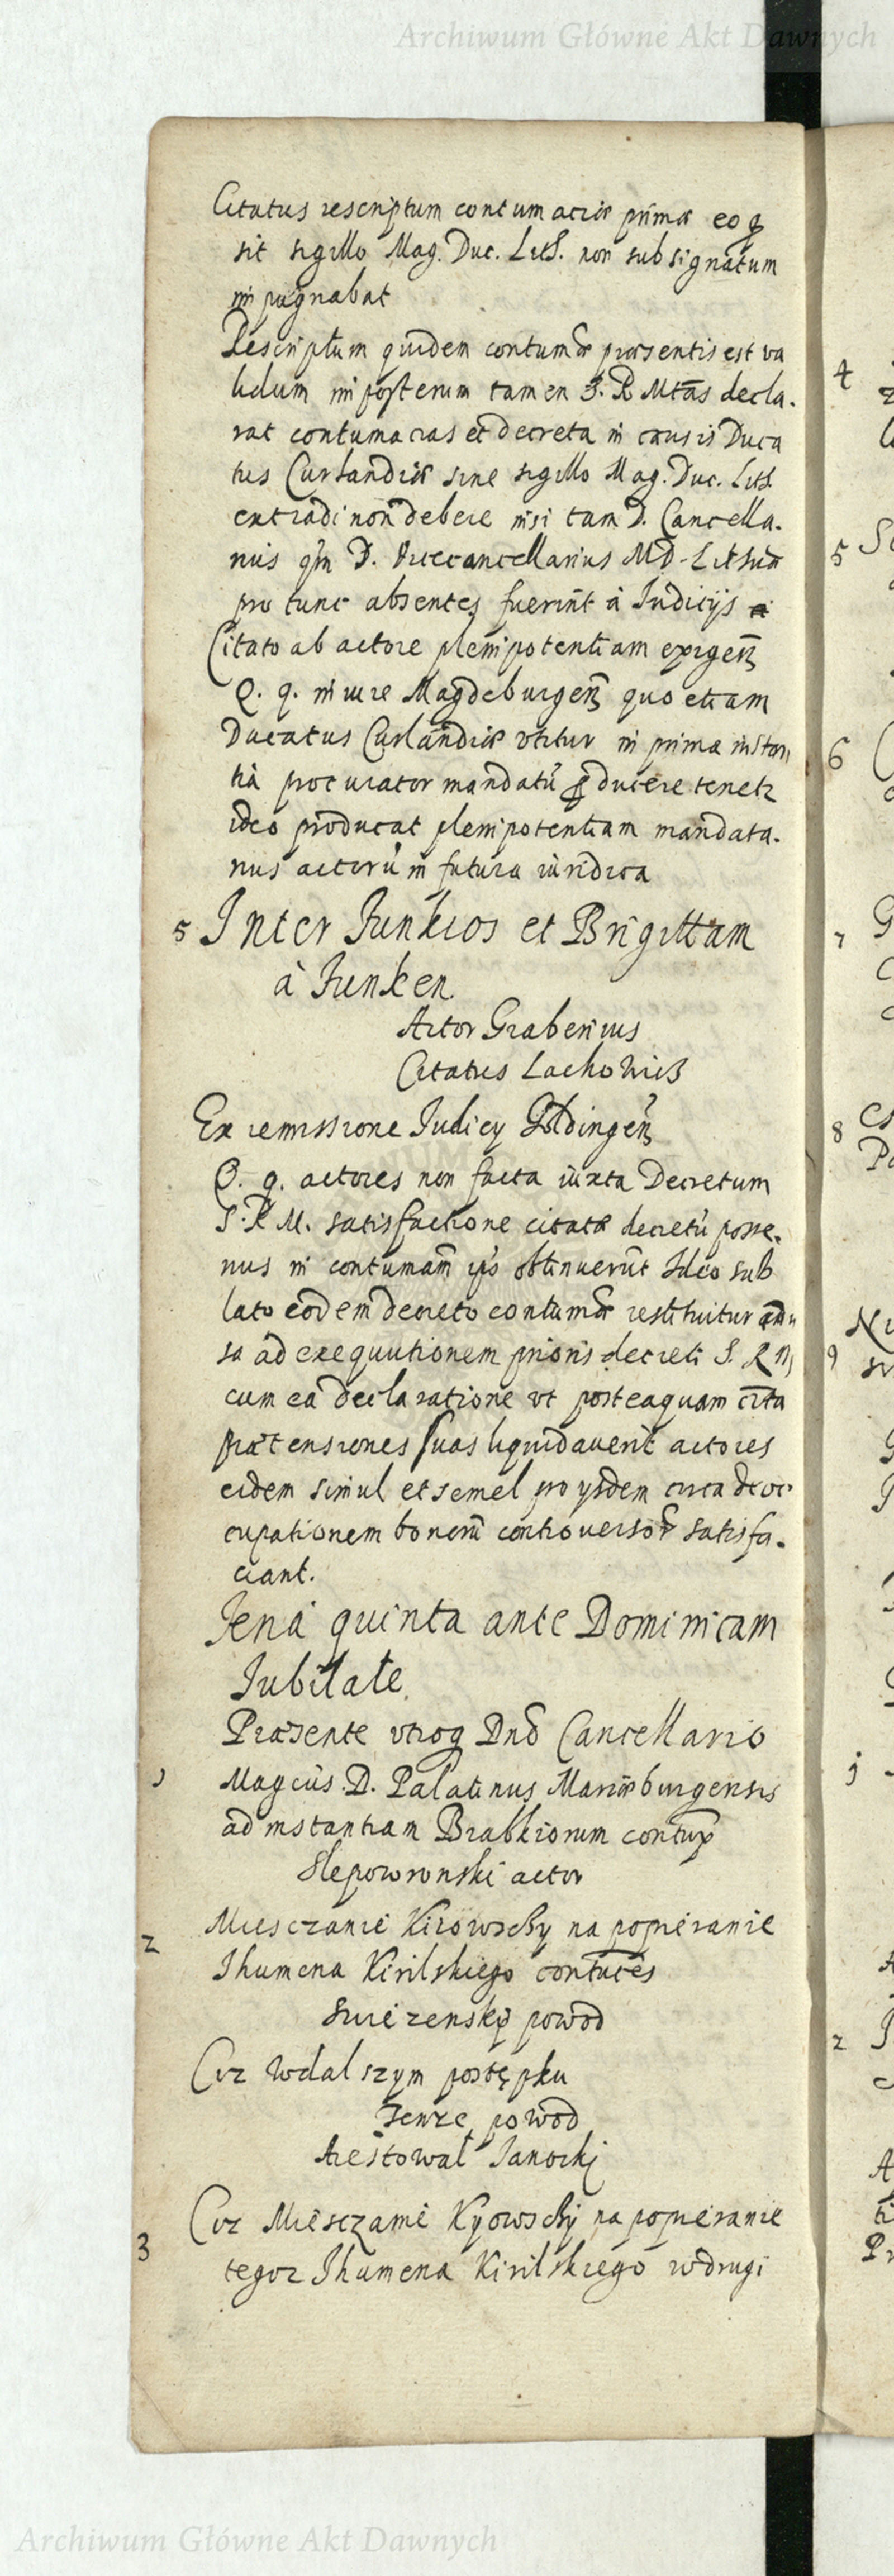 Archiwum Główne Akt Dawnych
Citatus rescriptum contumaciæ primæ eo q
sit sigillo Mag. Duc. Lith. non subsignatum
impugnabat
Rescriptum quidem contumæ præsentis est va
lidum in posterum tamen S. R Mtas decla.
rat contumacias et decreta in causis Duca
tus Curlandiæ sine sigillo Mag. Duc. Lith
extradi non debere nisi tam D. Cancella.
rius qm D. Vicecancellarius MD. Lithuæ
pro tunc absentes fuerint à Iudicijs
Citato ab actore plenipotentiam exigen
Q. q. in iure Magdeburgen quo etiam
Ducatus Curlandiæ vtitur in prima instan
tia procurator mandatu ducere tenetr
ideo producat plenipotentiam mandata.
rius actoru in futura iuridica
5 Inter Funkios et Brigittam
à Funken
Actor Graberius
Citatus Lachowicz
Ex remissione Iudicy Goldingen
Q. q. actores non facta iuxta Decretum
S. R M. satisfactione citatæ decretu
nus in contumam obtinuerut Ideo sub
lato eodem decreto contumæ restituitur
sa ad exequutionem prioris decreti S. R M
cum ea declaratione vt posteaquam cita
prætensiones suas liquidauerit actores
eidem simul et semel pro ysdem circa deoc
cupationem bonoru controuersor satisfa.
ciant.
Feria quinta ante Dominicam
Iubilate
Præsente vtroq Dnd Cancellario
1 Magcus D. Palatinus Mariæburgensis
ad instantiam Brabkiorum contux
Slepowronski actor
2 Miesczanie Kiiowschy na popieranie
Ihumena Kirilskiego contuces
Swiezensky powod
Ciz wdalszym postępku
Tenze powod
Arestowal Janocki
3 Ciz Miesczanie Kyowschy na popieranie
tegoz Ihumena Kirilskiego wdrugi
4
5
6
7
8
9
1
2
Archiwum Główne Akt Dawnych